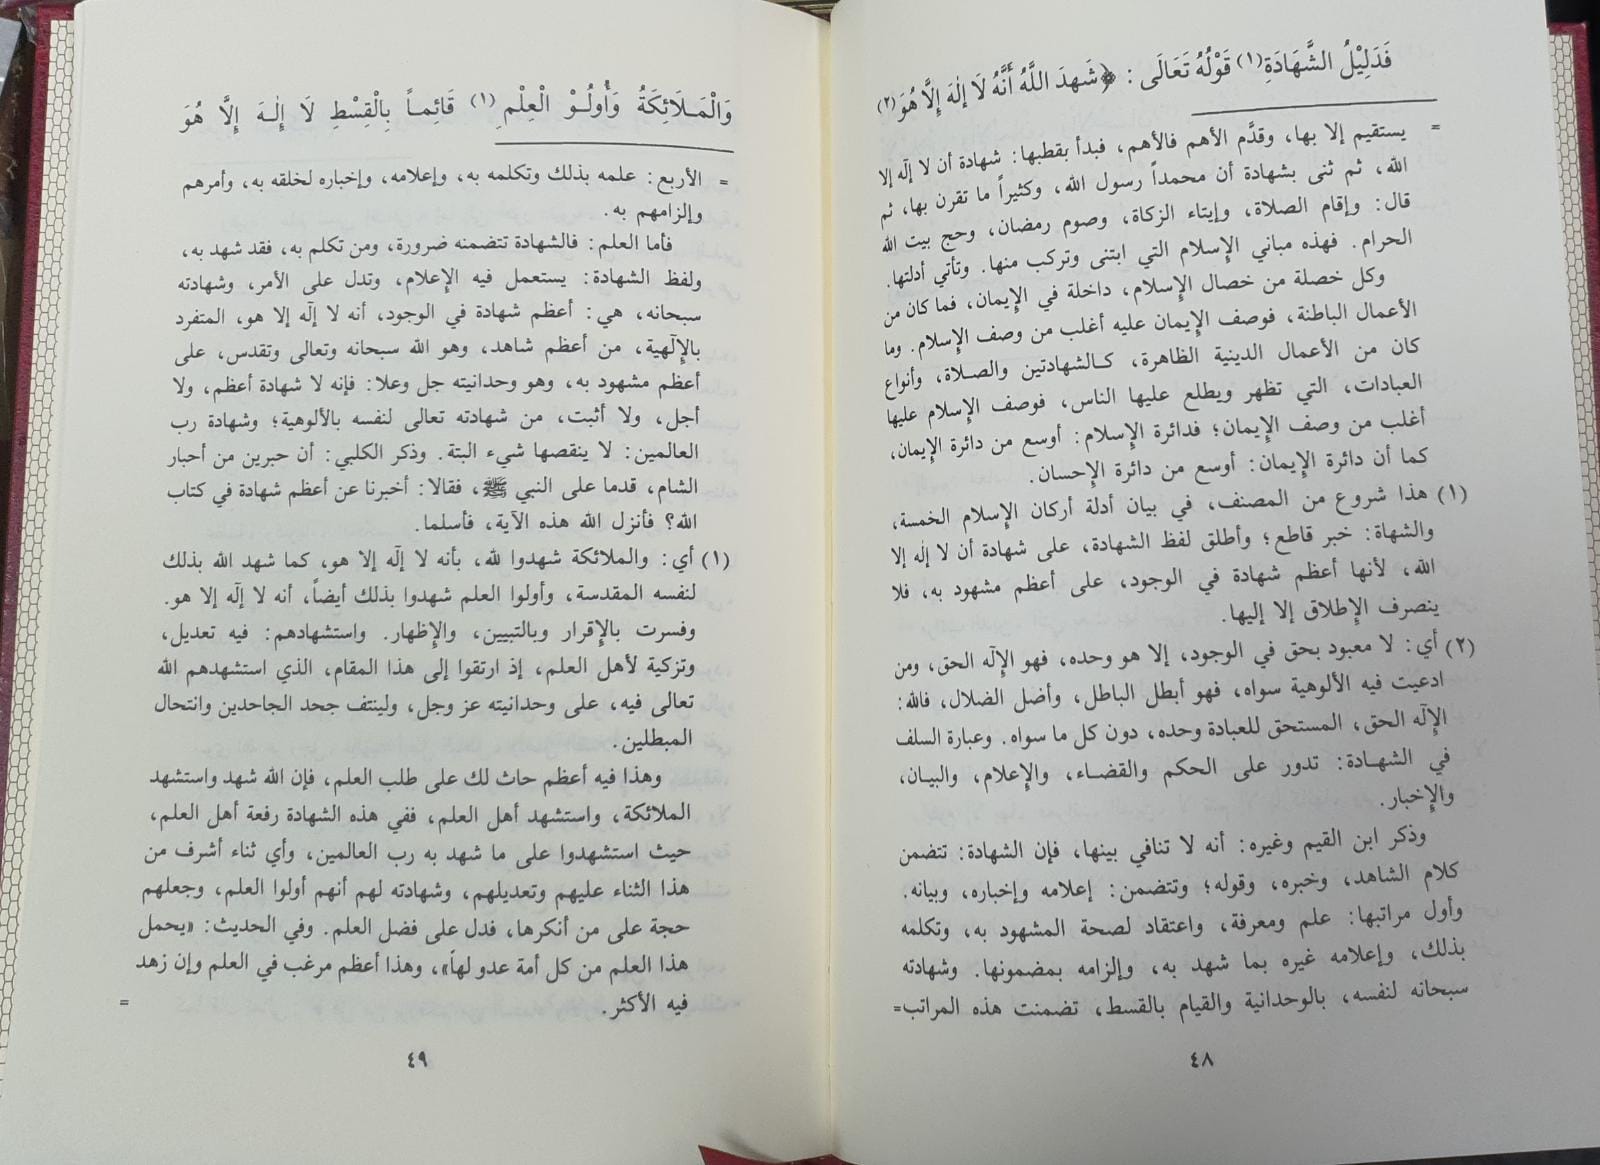 فَدَلِيْلُ الشَّهَادَةِ(١) قَوْلُهُ تَعَالَى : ﴿شَهِدَ اللَّهُ أَنَّهُ لَا إِلٰهَ إِلَّا هُوَ(٢)
= يستقيم إلا بها، وقدَّم الأهم فالأهم، فبدأ بقطبها: شهادة أن لا إلٰه إلا
الله، ثم ثنى بشهادة أن محمداً رسول الله، وكثيراً ما تقرن بها، ثم
قال: وإقام الصلاة، وإيتاء الزكاة، وصوم رمضان، وحج بيت الله
الحرام. فهذه مباني الإسلام التي ابتنى وتركب منها. وتأتي أدلتها.
وكل خصلة من خصال الإسلام، داخلة في الإيمان، فما كان من
الأعمال الباطنة، فوصف الإيمان عليه أغلب من وصف الإسلام. وما
كان من الأعمال الدينية الظاهرة، كالشهادتين والصلاة، وأنواع
العبادات، التي تظهر ويطلع عليها الناس، فوصف الإسلام عليها
أغلب من وصف الإيمان؛ فدائرة الإسلام: أوسع من دائرة الإيمان،
كما أن دائرة الإيمان: أوسع من دائرة الإحسان.
(١) هذا شروع من المصنف، في بيان أدلة أركان الإسلام الخمسة،
والشهاة: خبر قاطع؛ وأطلق لفظ الشهادة، على شهادة أن لا إلٰه إلا
الله، لأنها أعظم شهادة في الوجود، على أعظم مشهود به، فلا
ينصرف الإطلاق إلا إليها.
(٢) أي: لا معبود بحق في الوجود، إلا هو وحده، فهو الإلٰه الحق، ومن
ادعيت فيه الألوهية سواه، فهو أبطل الباطل، وأضل الضلال، فالله:
الإلٰه الحق، المستحق للعبادة وحده، دون كل ما سواه. وعبارة السلف
في الشهادة: تدور على الحكم والقضاء، والإعلام، والبيان،
والإخبار.
وذكر ابن القيم وغيره: أنه لا تنافي بينها، فإن الشهادة: تتضمن
كلام الشاهد، وخبره، وقوله؛ وتتضمن: إعلامه وإخباره، وبيانه.
وأول مراتبها: علم ومعرفة، واعتقاد لصحة المشهود به، وتكلمه
بذلك، وإعلامه غيره بما شهد به، وإلزامه بمضمونها. وشهادته
سبحانه لنفسه، بالوحدانية والقيام بالقسط، تضمنت هذه المراتب=
٤٨
وَالْمَلَائِكَةُ وَأُولُوْ الْعِلْمِ(١) قَائِماً بِالْقِسْطِ لَا إِلٰهَ إِلَّا هُوَ
= الأربع: علمه بذلك وتكلمه به، وإعلامه، وإخباره لخلقه به، وأمرهم
وإلزامهم به.
فأما العلم: فالشهادة تتضمنه ضرورة، ومن تكلم به، فقد شهد به،
ولفظ الشهادة: يستعمل فيه الإعلام، وتدل على الأمر، وشهادته
سبحانه، هي: أعظم شهادة في الوجود، أنه لا إلٰه إلا هو، المتفرد
بالإلٰهية، من أعظم شاهد، وهو الله سبحانه وتعالى وتقدس، على
أعظم مشهود به، وهو وحدانيته جل وعلا: فإنه لا شهادة أعظم، ولا
أجل، ولا أثبت، من شهادته تعالى لنفسه بالألوهية؛ وشهادة رب
العالمين: لا ينقصها شيء البتة. وذكر الكلبي: أن حبرين من أحبار
الشام، قدما على النبي ﷺ، فقالا: أخبرنا عن أعظم شهادة في كتاب
الله؟ فأنزل الله هذه الآية، فأسلما.
(١) أي: والملائكة شهدوا لله، بأنه لا إلٰه إلا هو، كما شهد الله بذلك
لنفسه المقدسة، وأولوا العلم شهدوا بذلك أيضاً، أنه لا إلٰه إلا هو.
وفسرت بالإقرار وبالتبيين، والإظهار. واستشهادهم: فيه تعديل،
وتزكية لأهل العلم، إذ ارتقوا إلى هذا المقام، الذي استشهدهم الله
تعالى فيه، على وحدانيته عز وجل، ولينتف جحد الجاحدين وانتحال
المبطلين.
وهذا فيه أعظم حاث لك على طلب العلم، فإن الله شهد واستشهد
الملائكة، واستشهد أهل العلم، ففي هذه الشهادة رفعة أهل العلم،
حيث استشهدوا على ما شهد به رب العالمين، وأي ثناء أشرف من
هذا الثناء عليهم وتعديلهم، وشهادته لهم أنهم أولوا العلم، وجعلهم
حجة على من أنكرها، فدل على فضل العلم. وفي الحديث: «يحمل
هذا العلم من كل أمة عدو لها»، وهذا أعظم مرغب في العلم وإن زهد
فيه الأكثر. =
٤٩